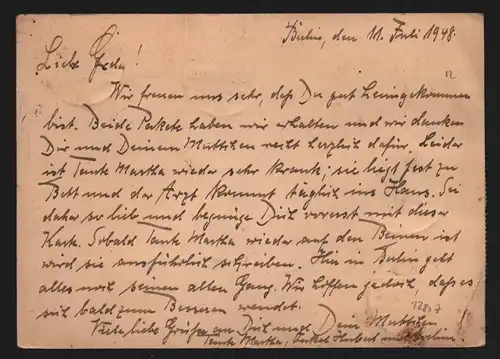 Berlin, den 11. Juli 1948.
Liebe !
12
Wir freuen uns sehr, daß Du gut heimgekommen
bist. Beide Pakete haben wir erhalten und wir danken
Dir und Deinem Muttchen recht herzlich dafür. Leider
ist Tante Martha wieder sehr krank; sie liegt fest zu
Bett und der Arzt kommt täglich ins Haus. Sei
daher so lieb und begnüge Dich vorerst mit dieser
Karte. Sobald Tante Martha wieder auf den Beinen ist
wird sie ausführlich schreiben. Hier in Berlin geht
alles noch seinen alten Gang. Wir hoffen jedoch, daß es
sich bald zum Besseren wendet.
Viele liebe Grüße an Dich und Dein Muttchen
Tante Martha, Onkel Herbert und